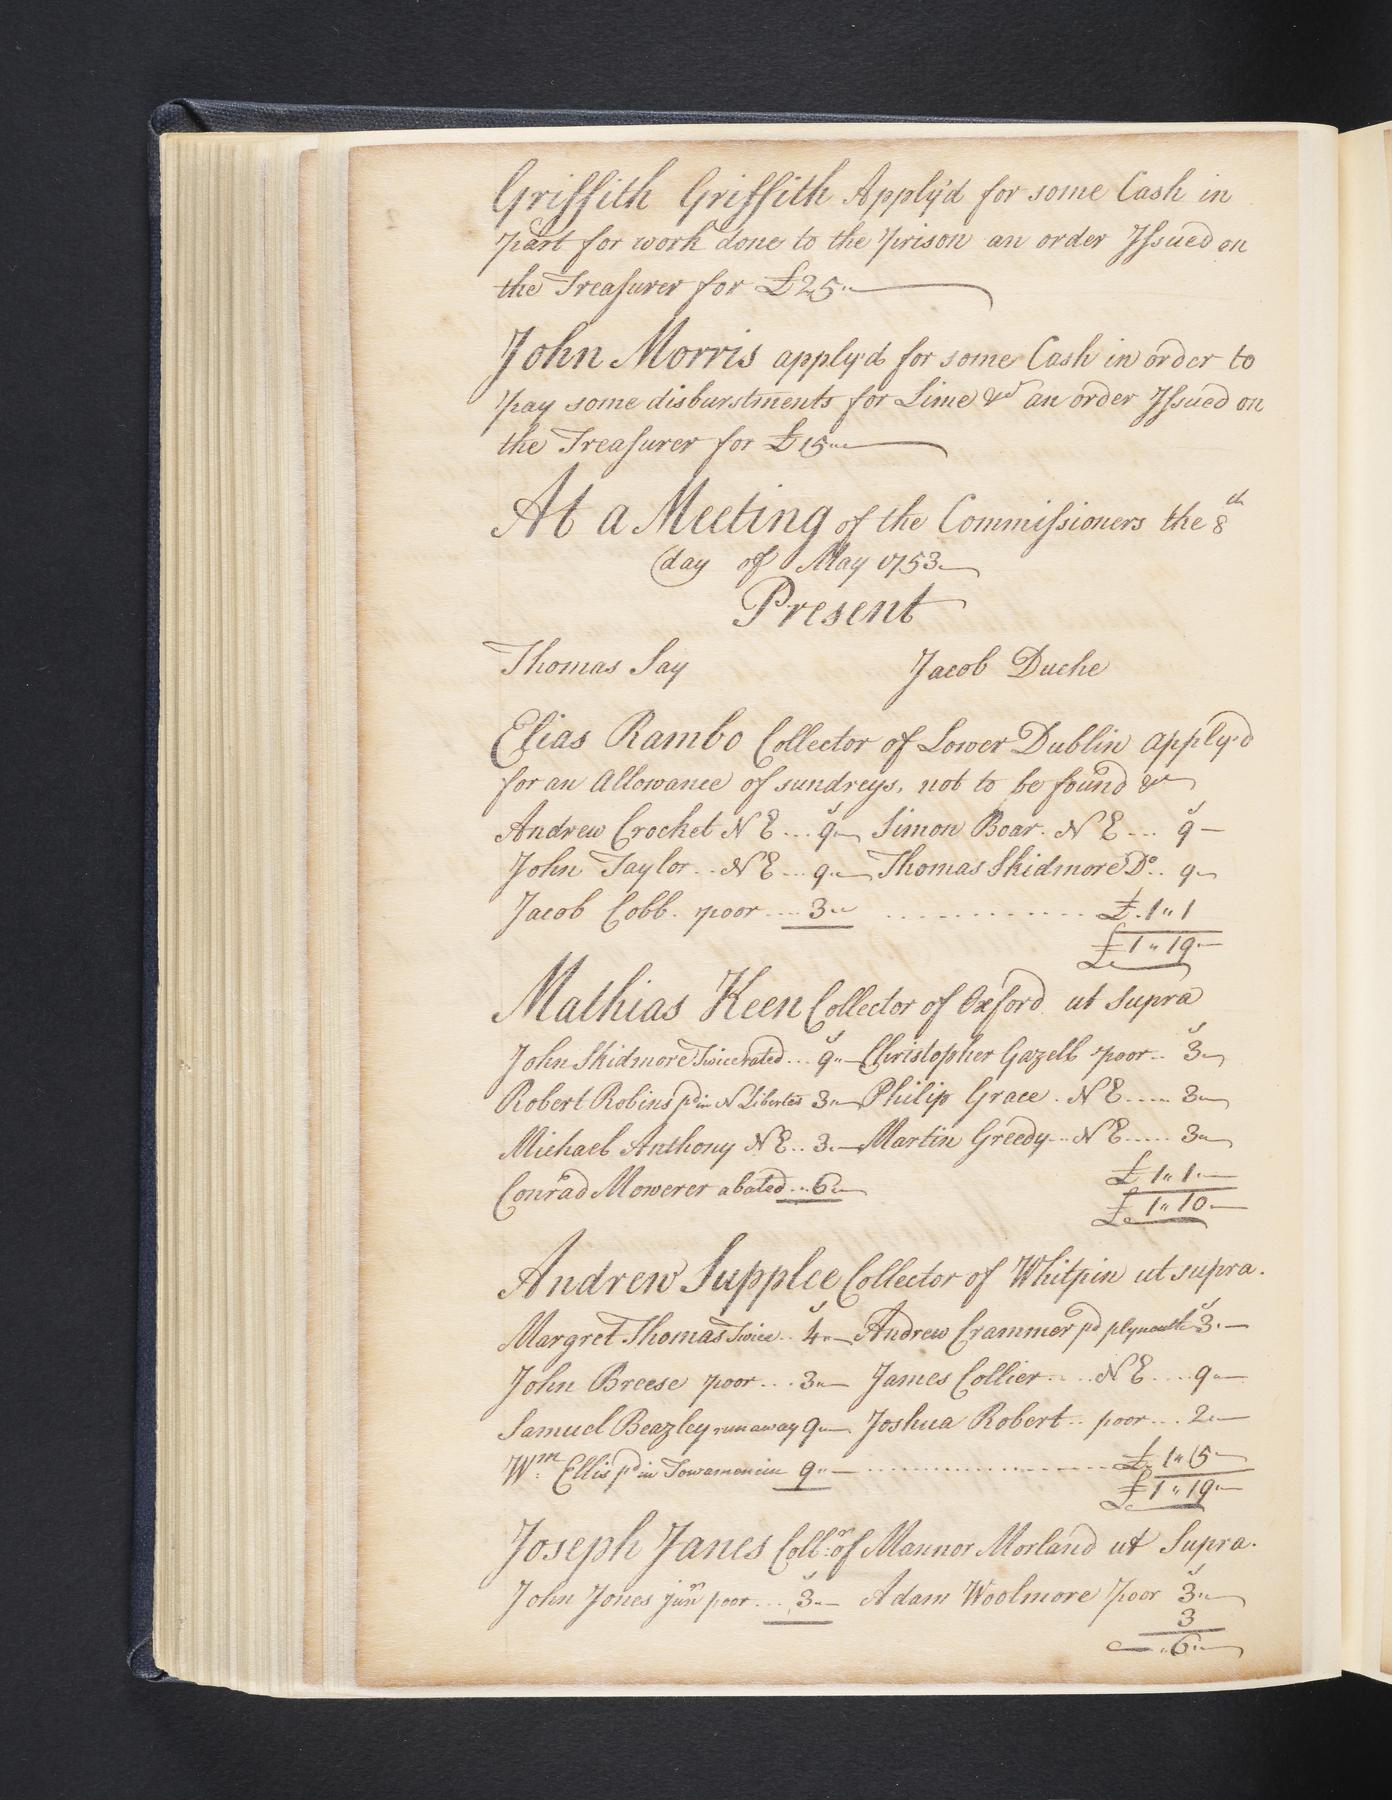 Griffith Griffith Apply'd for some Cash in
part for work done to the prison an order Issued on
the Treasurer for £25"
John Morris apply'd for some Cash in order to
pay some disburstments for Lime &c an order Issued on
the Treasurer for £15"
At a Meeting of the Commissioners the 8th
day of May 1753
Present
Thomas Say Jacob Duche
Elias Rambo Collector of Lower Dublin apply'd
for an Allowance of sundreys, not to be found &c
Andrew Crocket N E ... 9s Simon Boar. N E ... 9s
John Taylor .. N E ... 9" Thomas Skidmore Do .. 9
Jacob Cobb. poor .... 3" ............ £.1"1
£1"19"
Mathias Keen Collector of Oxford ut supra
John Skidmore Twice rated ... 9s" Christopher Gazell poor .. 3s
Robert Robins pd in N Liberties 3" Philip Grace . N E ..... 3"
Michael Anthony N E .. 3" Martin Greedy ... N E ..... 3"
Conrad Mowerer abated ... 6" £1"1"
£1"10"
Andrew Supplee Collector of Whitpin ut supra.
Margret Thomas Twice .. 4s" Andrew Crammer pd plymouth 3s"
John Breese poor ... 3" James Collier .... N E .... 9"
Samuel Beazley run away 9" Joshua Robert .. poor ... 2"
Wm: Ellis pd in Towamencin 9" .................. £1"5
£1"19"
Joseph Janes Collr: of Mannor Morland ut Supra.
John Jones junr poor ... 3s" Adam Woolmore poor 3s"
3
"6"